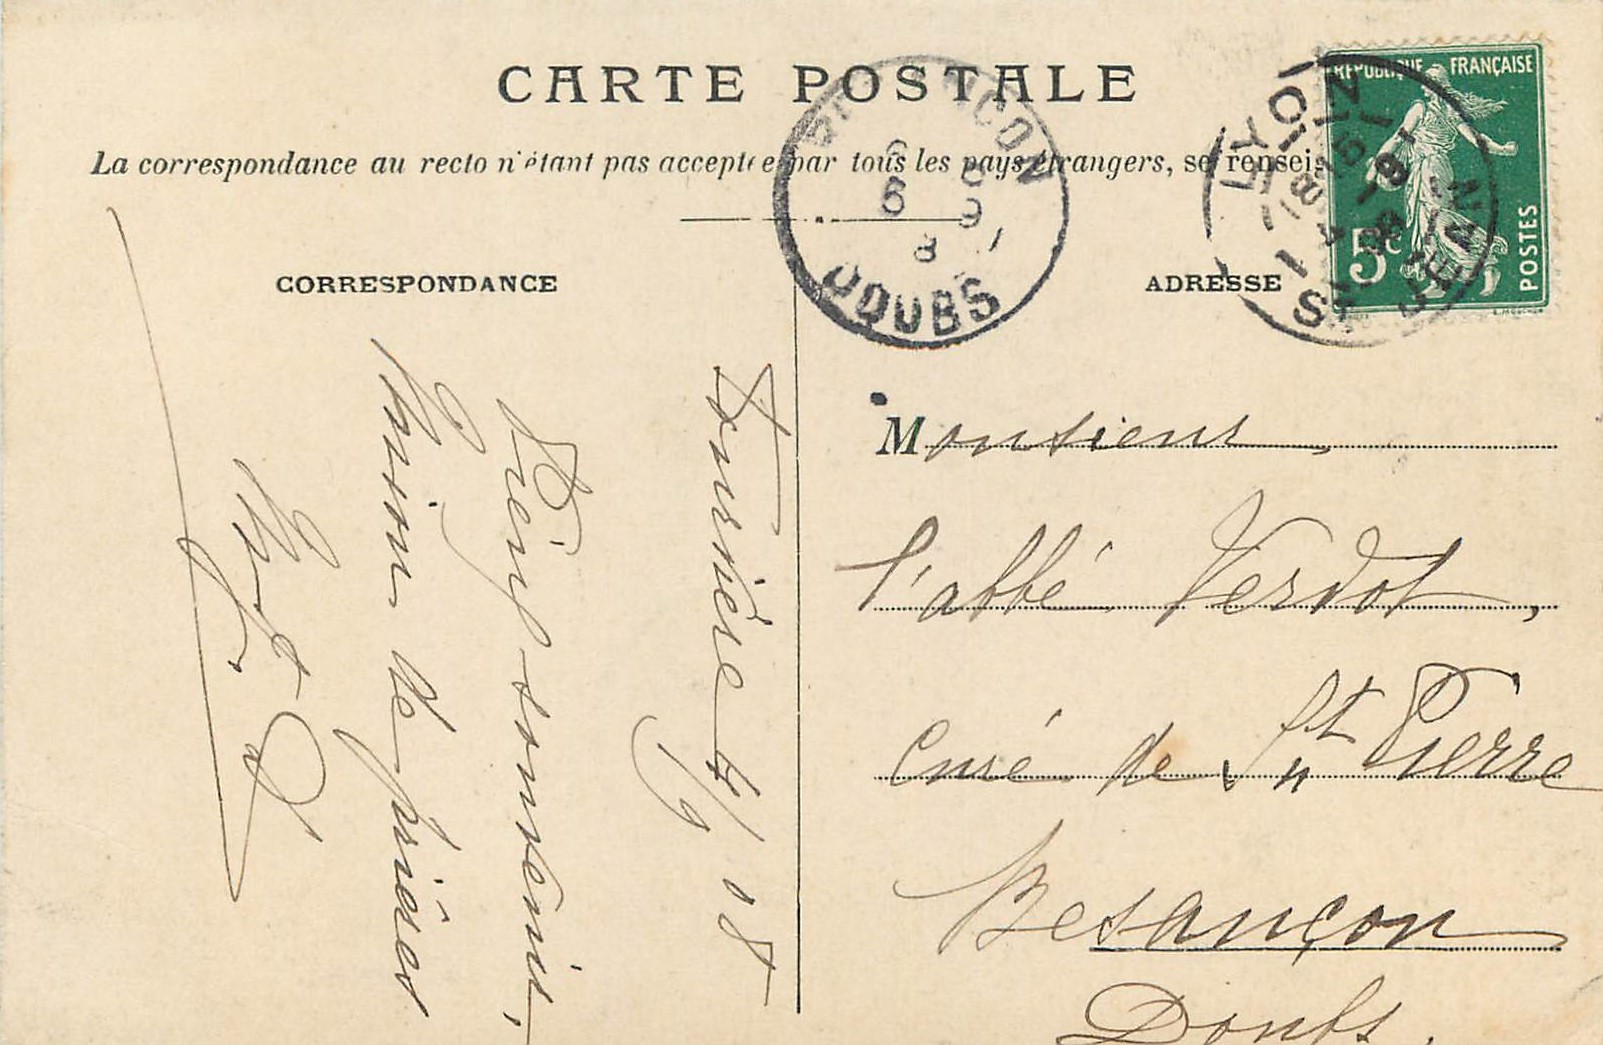 CARTE POSTALE
La correspondance au recto n'étant pas acceptée par tous les pays étrangers, se renseig
CORRESPONDANCE
ADRESSE
RÉPUBLIQUE FRANÇAISE
5c
POSTES
LYON
ST JUST
DOUBS
Fourvière 4/9 08
Pieux souvenir,
Union de prières
Monsieur
l'abbé Verdot,
Curé de St Pierre
Besançon
Doubs.